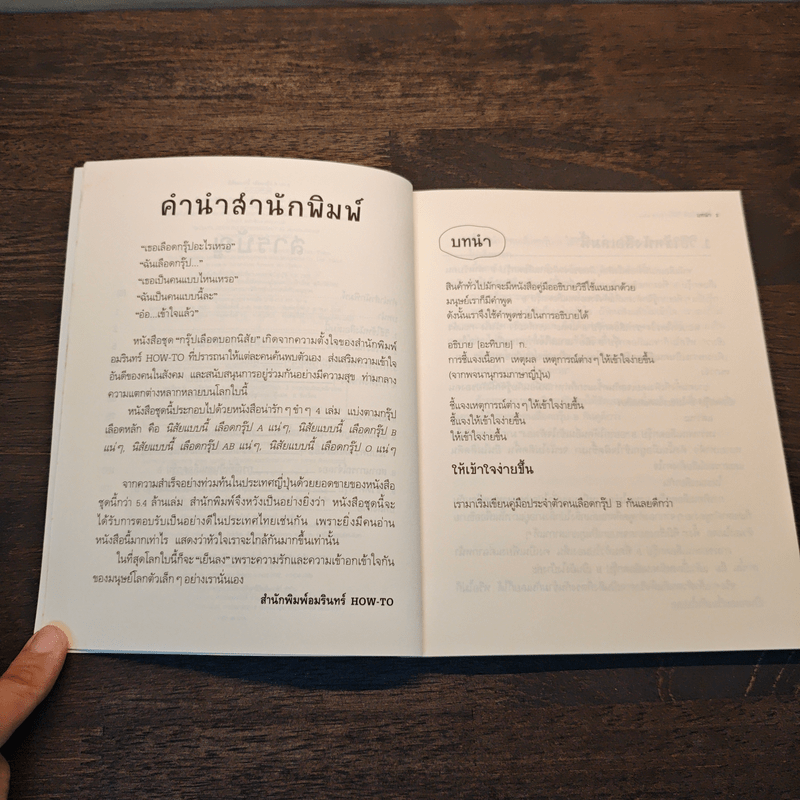 คำนำสำนักพิมพ์
“เธอเลือดกรุ๊ปอะไรเหรอ”
“ฉันเลือดกรุ๊ป...”
“เธอเป็นคนแบบไหนเหรอ”
“ฉันเป็นคนแบบนี้ละ”
“อ๋อ...เข้าใจแล้ว”
หนังสือชุด “กรุ๊ปเลือดบอกนิสัย” เกิดจากความตั้งใจของสำนักพิมพ์
อมรินทร์ HOW-TO ที่ปรารถนาให้แต่ละคนค้นพบตัวเอง ส่งเสริมความเข้าใจ
อันดีของคนในสังคม และสนับสนุนการอยู่ร่วมกันอย่างมีความสุข ท่ามกลาง
ความแตกต่างหลากหลายบนโลกใบนี้
หนังสือชุดนี้ประกอบไปด้วยหนังสือน่ารัก ๆ ขำ ๆ 4 เล่ม แบ่งตามกรุ๊ป
เลือดหลัก คือ นิสัยแบบนี้ เลือดกรุ๊ป A แน่ ๆ, นิสัยแบบนี้ เลือดกรุ๊ป B
แน่ ๆ, นิสัยแบบนี้ เลือดกรุ๊ป AB แน่ ๆ, นิสัยแบบนี้ เลือดกรุ๊ป O แน่ ๆ
จากความสำเร็จอย่างท่วมท้นในประเทศญี่ปุ่นด้วยยอดขายของหนังสือ
ชุดนี้กว่า 5.4 ล้านเล่ม สำนักพิมพ์จึงหวังเป็นอย่างยิ่งว่า หนังสือชุดนี้จะ
ได้รับการตอบรับเป็นอย่างดีในประเทศไทยเช่นกัน เพราะยิ่งมีคนอ่าน
หนังสือนี้มากเท่าไร แสดงว่าหัวใจเราจะใกล้กันมากขึ้นเท่านั้น
ในที่สุดโลกใบนี้ก็จะ “เย็นลง” เพราะความรักและความเข้าอกเข้าใจกัน
ของมนุษย์โลกตัวเล็ก ๆ อย่างเรานั่นเอง
สำนักพิมพ์อมรินทร์ HOW-TO
บทนำ
สินค้าทั่วไปมักจะมีหนังสือคู่มืออธิบายวิธีใช้แนบมาด้วย
มนุษย์เราก็มีคำพูด
ดังนั้นเราจึงใช้คำพูดช่วยในการอธิบายได้
อธิบาย [อะทิบาย] ก.
การชี้แจงเนื้อหา เหตุผล เหตุการณ์ต่าง ๆ ให้เข้าใจง่ายขึ้น
(จากพจนานุกรมภาษาญี่ปุ่น)
ชี้แจงเหตุการณ์ต่าง ๆ ให้เข้าใจง่ายขึ้น
ชี้แจงให้เข้าใจง่ายขึ้น
ให้เข้าใจง่ายขึ้น
ให้เข้าใจง่ายขึ้น
เรามาเริ่มเขียนคู่มือประจำตัวคนเลือดกรุ๊ป B กันเลยดีกว่า